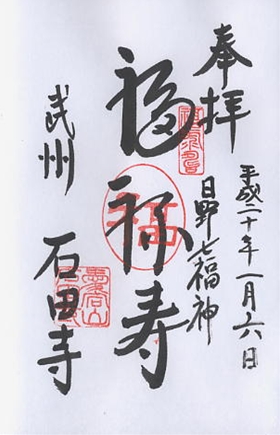 奉拝
平成二十年一月六日
日野七福神
福禄寿
武州
石田寺